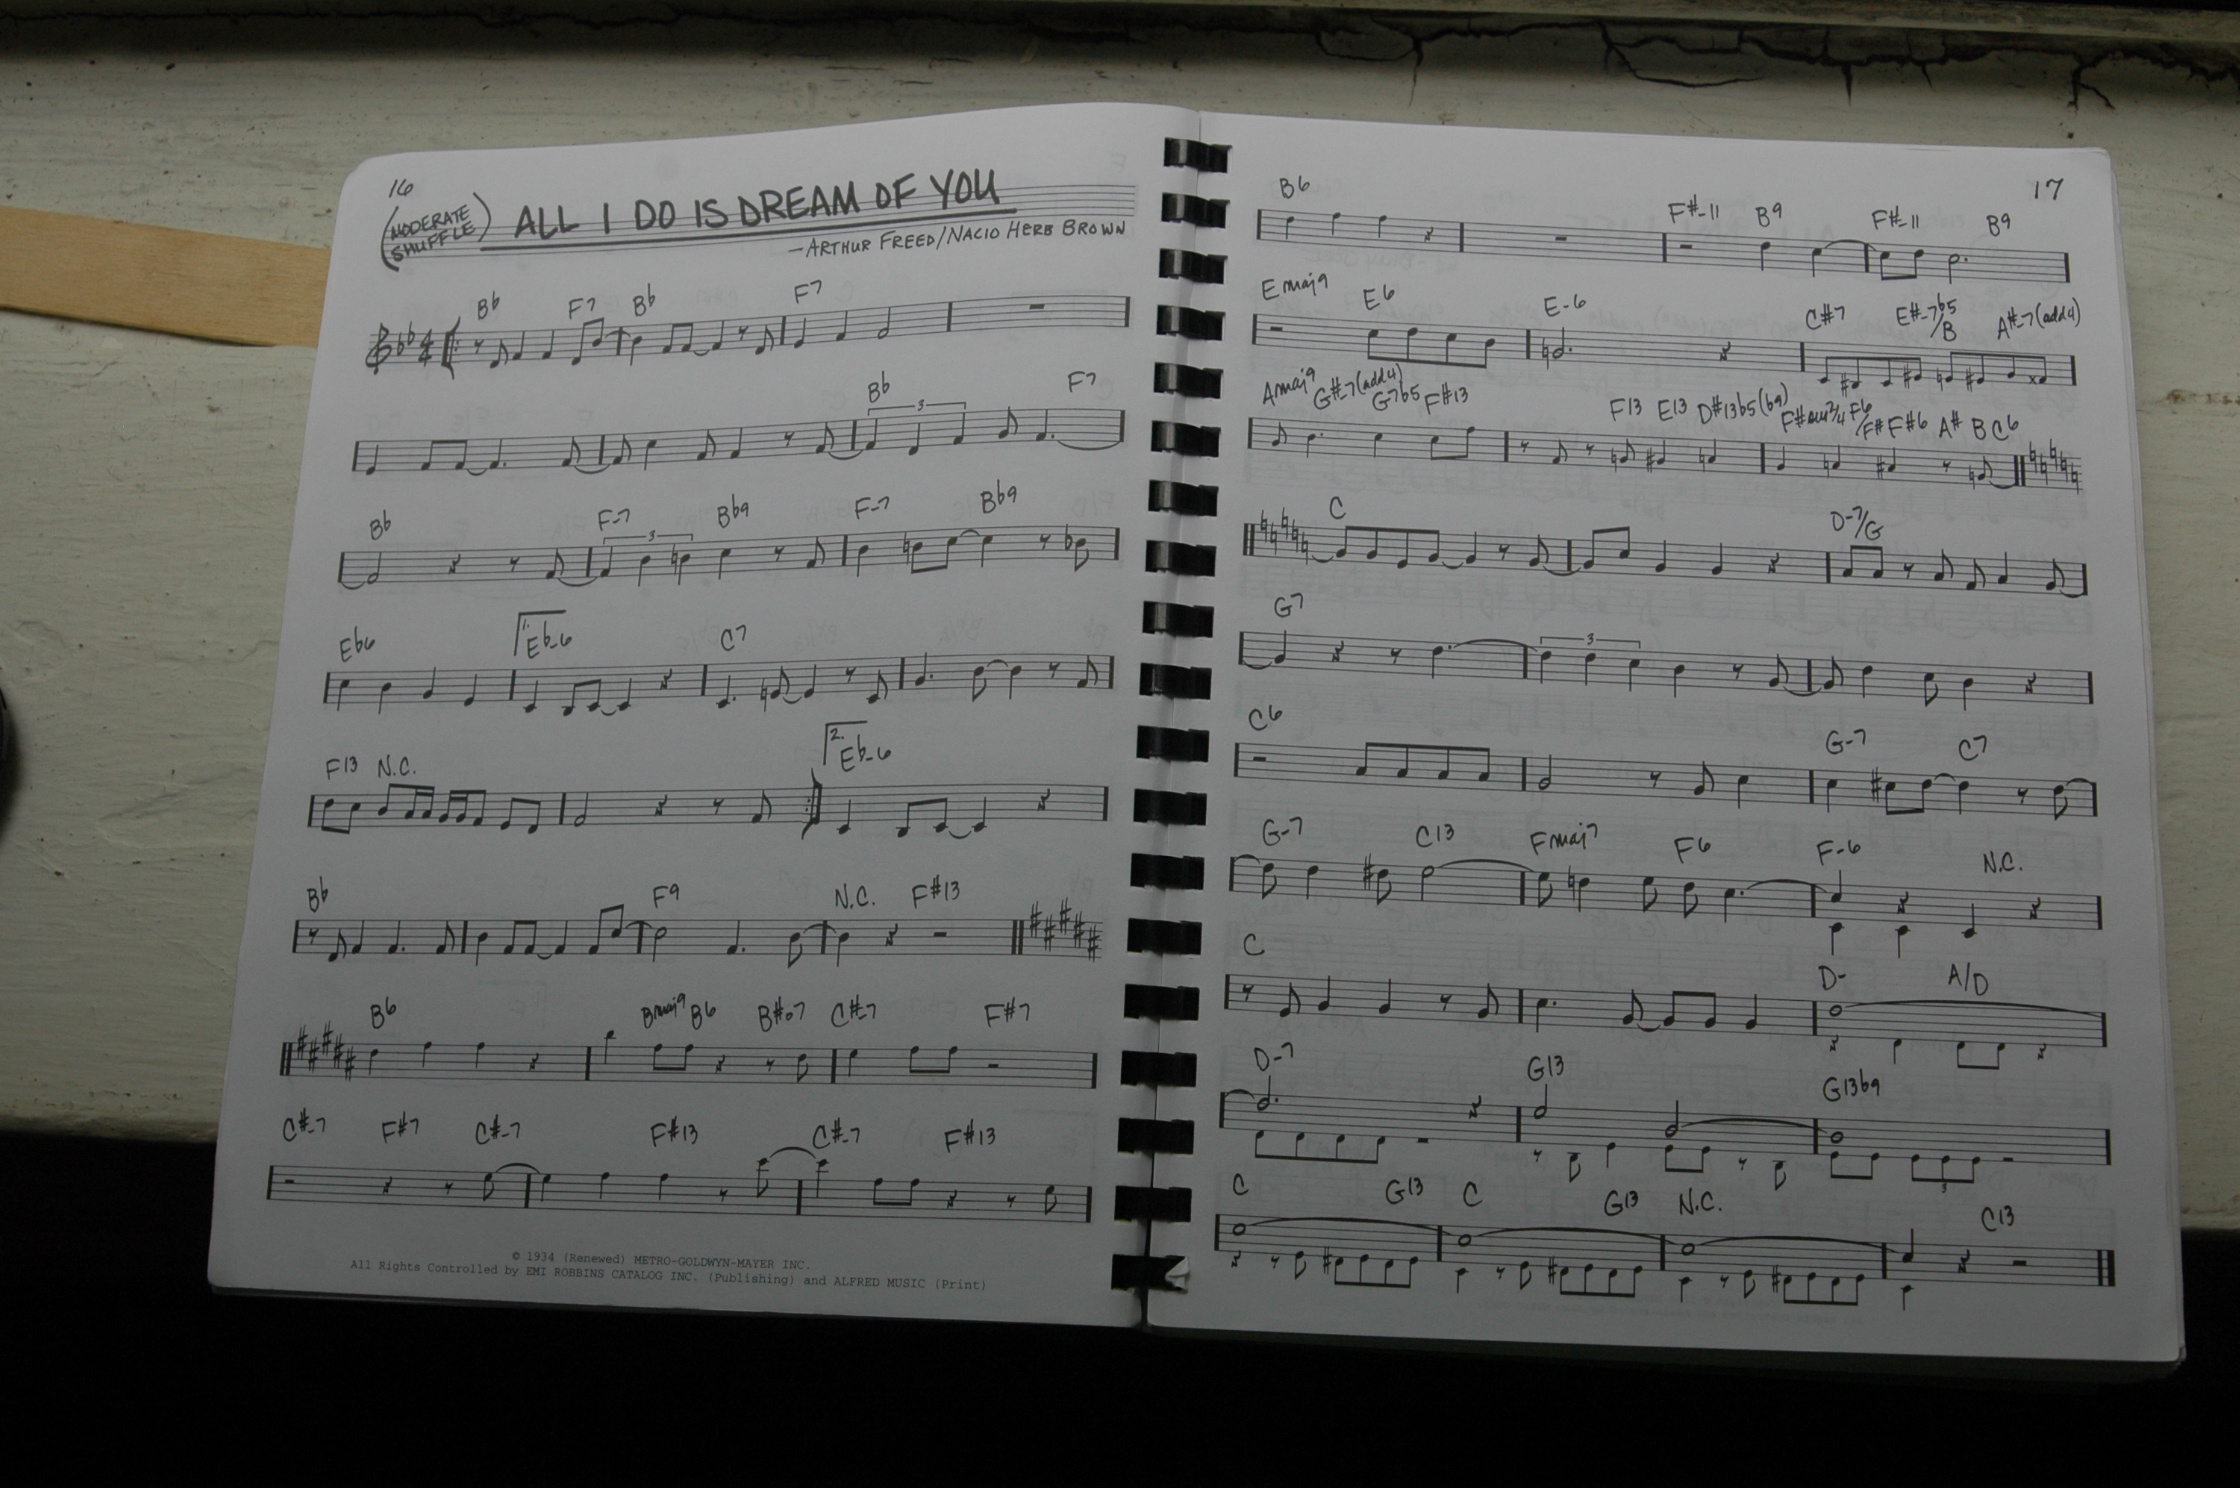 16
(MODERATE SHUFFLE) ALL I DO IS DREAM OF YOU
—ARTHUR FREED/NACIO HERB BROWN
Bb F7 Bb F7
Bb 3 F7
Bb F-7 3 Bb9 F-7 Bb9
Eb6 1. Eb-6 C7
F13 N.C. 2. Eb-6
Bb F9 N.C. F#13
B6 Bmaj9 B6 B#o7 C#-7 F#7
C#-7 F#7 C#-7 F#13 C#-7 F#13
© 1934 (Renewed) METRO-GOLDWYN-MAYER INC.
All Rights Controlled by EMI ROBBINS CATALOG INC. (Publishing) and ALFRED MUSIC (Print)
17
B6 F#-11 B9 F#-11 B9
Emaj9 E6 E-6 C#7 E#-7b5/B A#-7(add4)
Amaj9 G#-7(add4) G7b5 F#13 F13 E13 D#13b5(b9) F6/F# F#6 A# B C6
C D-7/G
G7 3
C6 G-7 C7
G-7 C13 Fmaj7 F6 F-6 N.C.
C D- A/D
D-7 G13 G13b9
3
C G13 C G13 N.C. C13